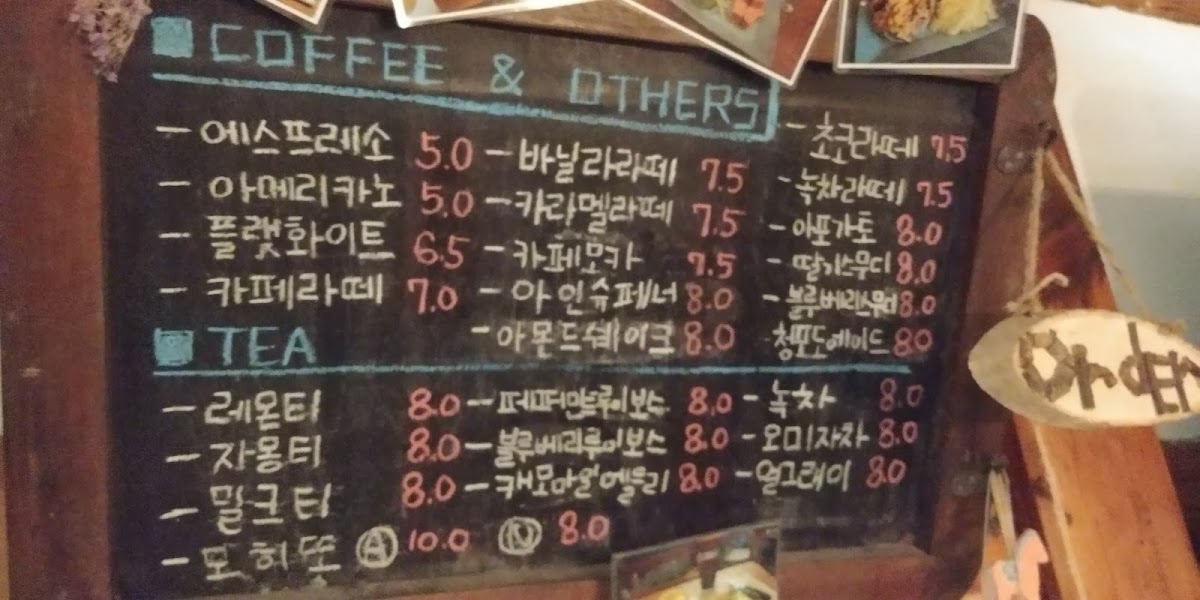 COFFEE & OTHERS
- 에스프레소 5.0
- 아메리카노 5.0
- 플랫화이트 6.5
- 카페라떼 7.0
- 바닐라라떼 7.5
- 카라멜라떼 7.5
- 카페모카 7.5
- 아인슈페너 8.0
- 아몬드쉐이크 8.0
- 초코라떼 7.5
- 녹차라떼 7.5
- 아포가토 8.0
- 딸기스무디 8.0
- 블루베리스무디 8.0
청포도에이드 8.0
TEA
- 레몬티 8.0
- 자몽티 8.0
- 밀크티 8.0
- 모히또 Ⓐ 10.0 Ⓝ 8.0
- 페퍼민트루이보스 8.0
- 블루베리루이보스 8.0
- 캐모마일 8.0
- 녹차 8.0
- 오미자차 8.0
- 얼그레이 8.0
Order